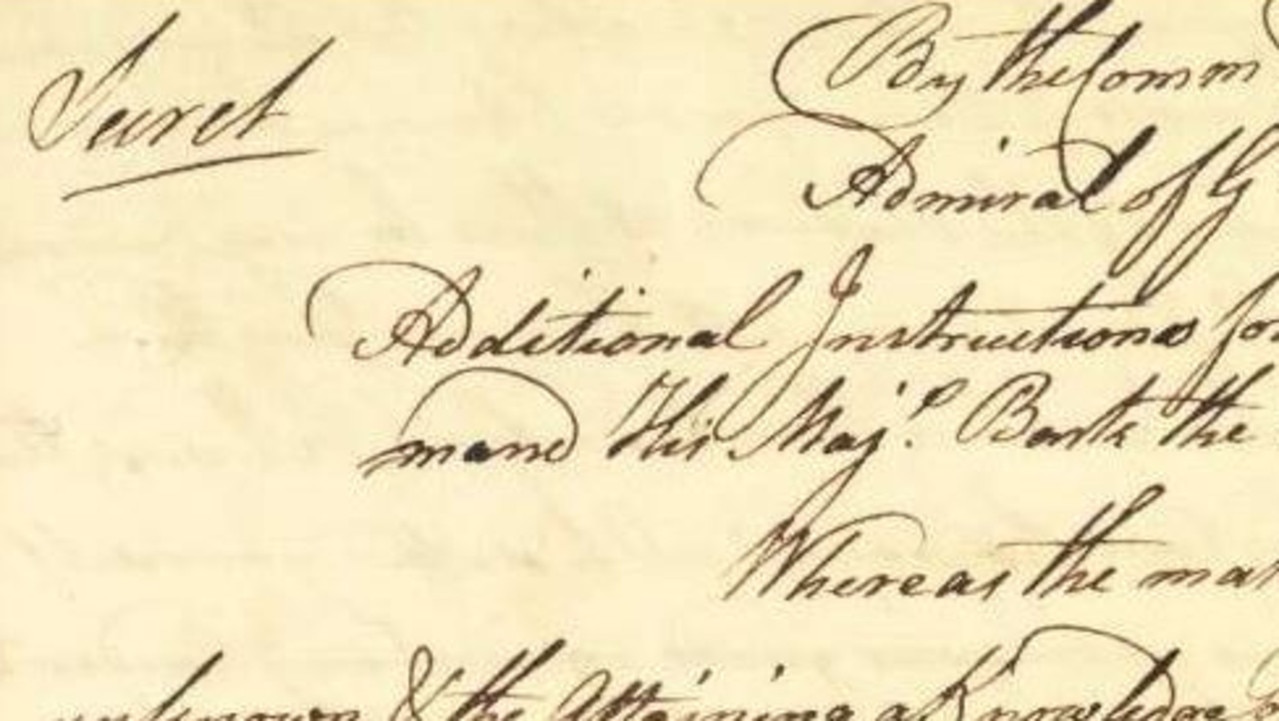 Secret
By the Comm
Admiral of G
Additional Instructions for
mand His Maj.s Bark the
Whereas the ma
unknown & the Attaining a Knowledge